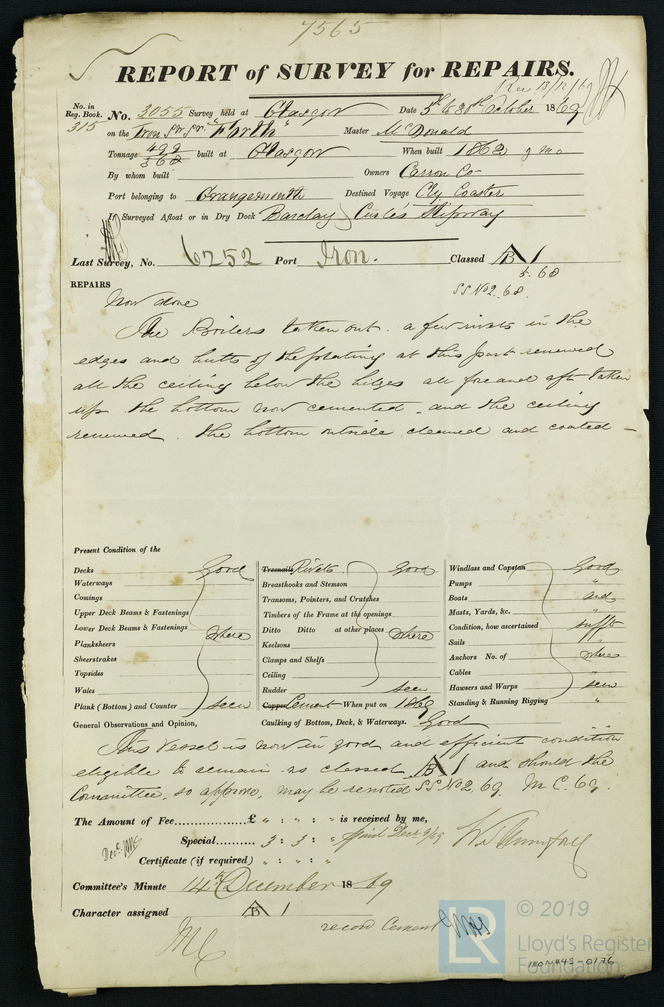 7565
REPORT of SURVEY for REPAIRS.
Rec 13/12/69
No. in Reg. Book. 315
No. 3055 Survey held at Glasgow Date 5th to 30th October 1869
on the Iron Sr. Sr. "Forth" Master McDonald
Tonnage 499 368 built at Glasgow When built 1862 mo
By whom built Owners Carron Co
Port belonging to Grangemouth Destined Voyage Cly Coaster
If Surveyed Afloat or in Dry Dock Barclay Curle's Slipway
Last Survey, No. 6252 Port Iron. Classed A B 1
5. 68
SS No2. 68.
REPAIRS
Now done
The Boilers taken out. a few rivets in the
edges and butts of the plating at this part renewed
all the ceiling below the bilges all fore and aft taken
up the bottom now cemented and the ceiling
renewed. the bottom outside cleaned and coated –
Present Condition of the
Decks Good
Waterways
Comings
Upper Deck Beams & Fastenings
Lower Deck Beams & Fastenings
Planksheers where
Sheerstrakes
Topsides
Wales
Plank (Bottom) and Counter seen
Treenails Rivets Good
Breasthooks and Stemson
Transoms, Pointers, and Crutches
Timbers of the Frame at the openings
Ditto Ditto at other places where
Keelsons
Clamps and Shelfs
Ceiling
Rudder seen
Copper Cement When put on 1869
Caulking of Bottom, Deck, & Waterways. Good
Windlass and Capstan Good
Pumps "
Boats and
Masts, Yards, &c. "
Condition, how ascertained sufft
Sails "
Anchors No. of where
Cables "
Hawsers and Warps seen
Standing & Running Rigging "
General Observations and Opinion,
This Vessel is now in good and efficient condition
eligible to remain as classed A B 1 and should the
Committee so approve, may be noted SS No2 69. M C. 69.
The Amount of Fee £ " : " : " is received by me,
Special 3 : 3 : "
Certificate (if required) " : " : "
Committee's Minute 14th December 1869
Character assigned A B 1
record Cement
LR
© 2019
Lloyd's Register
Foundation
IRON#43-0176